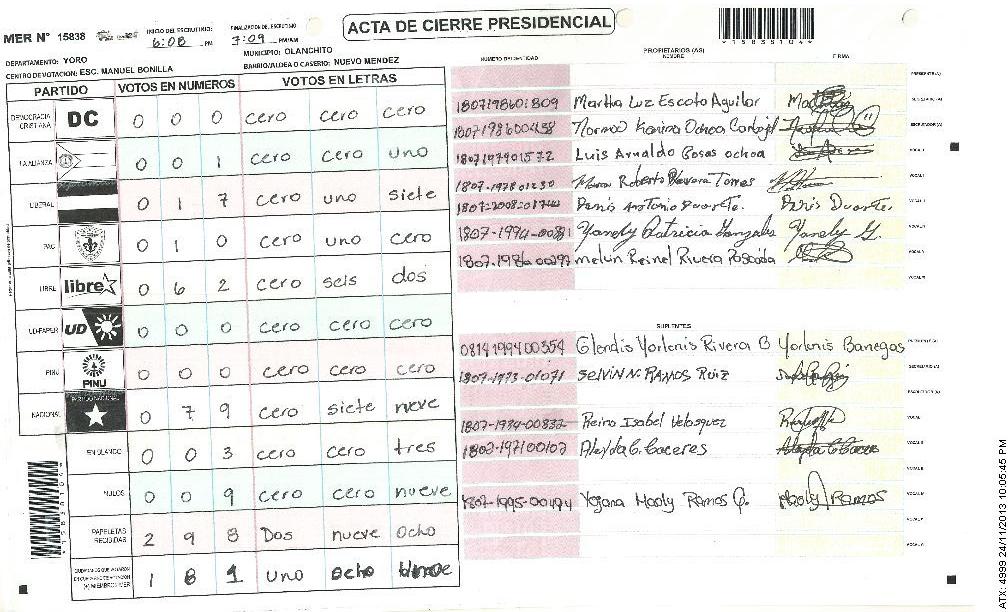 ACTA DE CIERRE PRESIDENCIAL
MER N° 15838
INICIO DEL ESCRUTINIO 6:08 PM
FINALIZACION DEL ESCRUTINIO 7:09 PM/AM
*15838104*
DEPARTAMENTO: YORO
MUNICIPIO: OLANCHITO
CENTRO DE VOTACION: ESC. MANUEL BONILLA
BARRIO/ALDEA O CASERIO: NUEVO MENDEZ
PARTIDO VOTOS EN NUMEROS VOTOS EN LETRAS
DEMOCRACIA CRISTIANA DC 0 0 0 cero cero cero
LA ALIANZA 0 0 1 cero cero uno
LIBERAL 0 1 7 cero uno siete
PAC 0 1 0 cero uno cero
LIBRE libre 0 6 2 cero seis dos
UD-FAPER UD 0 0 0 cero cero cero
PINU PINU 0 0 0 cero cero cero
NACIONAL PARTIDO NACIONAL 0 7 9 cero siete neve
EN BLANCO 0 0 3 cero cero tres
NULOS 0 0 9 cero cero nueve
PAPELETAS RECIBIDAS 2 9 8 Dos nueve ocho
CIUDADANOS QUE VOTARON (+) MIEMBROS MER 1 8 1 uno ocho
NUMERO DE IDENTIDAD PROPIETARIOS (AS) NOMBRE FIRMA
PRESIDENTE(A)
1807198601809 Martha Luz Escoto Aguilar SECRETARIO(A)
1807198600438 Karina Ochoa ESCRUTADOR(A)
1807197901572 Luis Arnaldo Rosas ochoa VOCAL I
1807-1978-01230 Roberto Torres
1807-2008-01744 Paris Antonio Duarte. Paris Duarte.
1807-1994-00881 Yanely Patricia Gonzales Yanely G.
1807-1986-00297 melvin Reinel Rivera Posada
SUPLENTES
0814199400354 Glendis Yorlenis Rivera B Yorlenis Banegas
1807-1973-01071 SELVIN N. RAMOS RUIZ SECRETARIO(A)
ESCRUTADOR(A)
1807-1984-00832 Reina Isabel Velasquez
1807-197100107 Aleyda C. Caceres Aleyda C Caceres
1807-1995-00494 Maoly Ramos G. Maoly Ramos
ATX: 4999 24/11/2013 10:05:45 PM